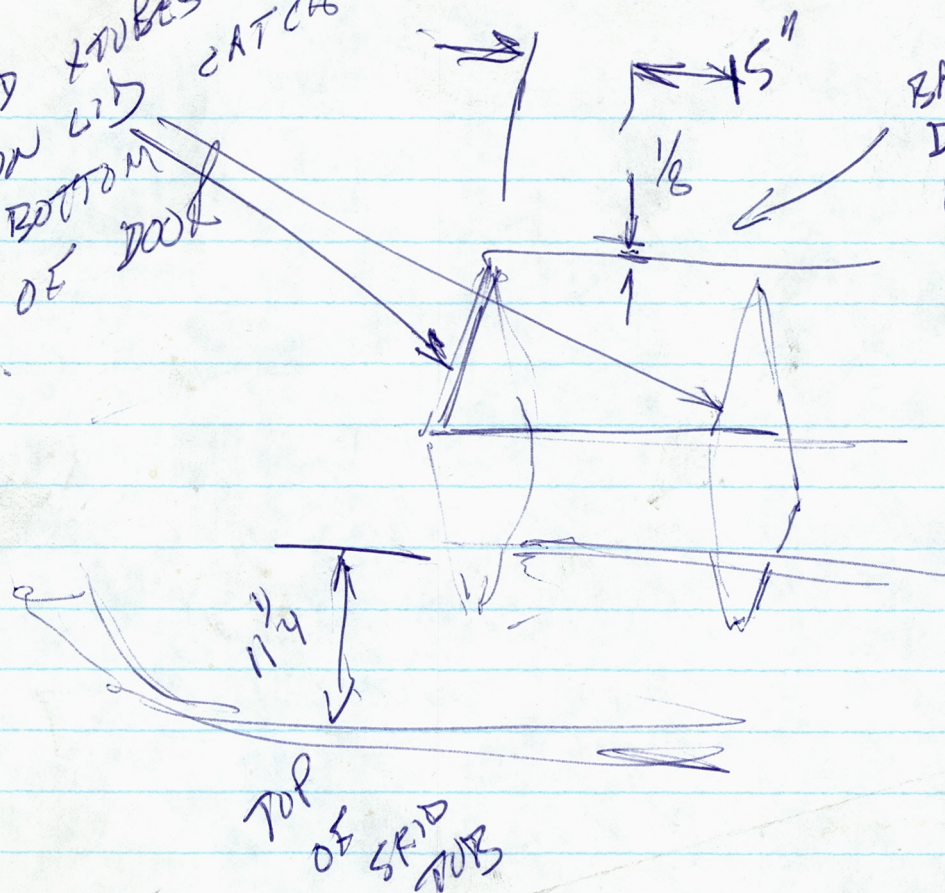 D XTUBES
ON LID CATCH
BOTTOM
OF DOOR
5"
1/8
BA
D
1
11 1/4
TOP
OF SKID
TUB